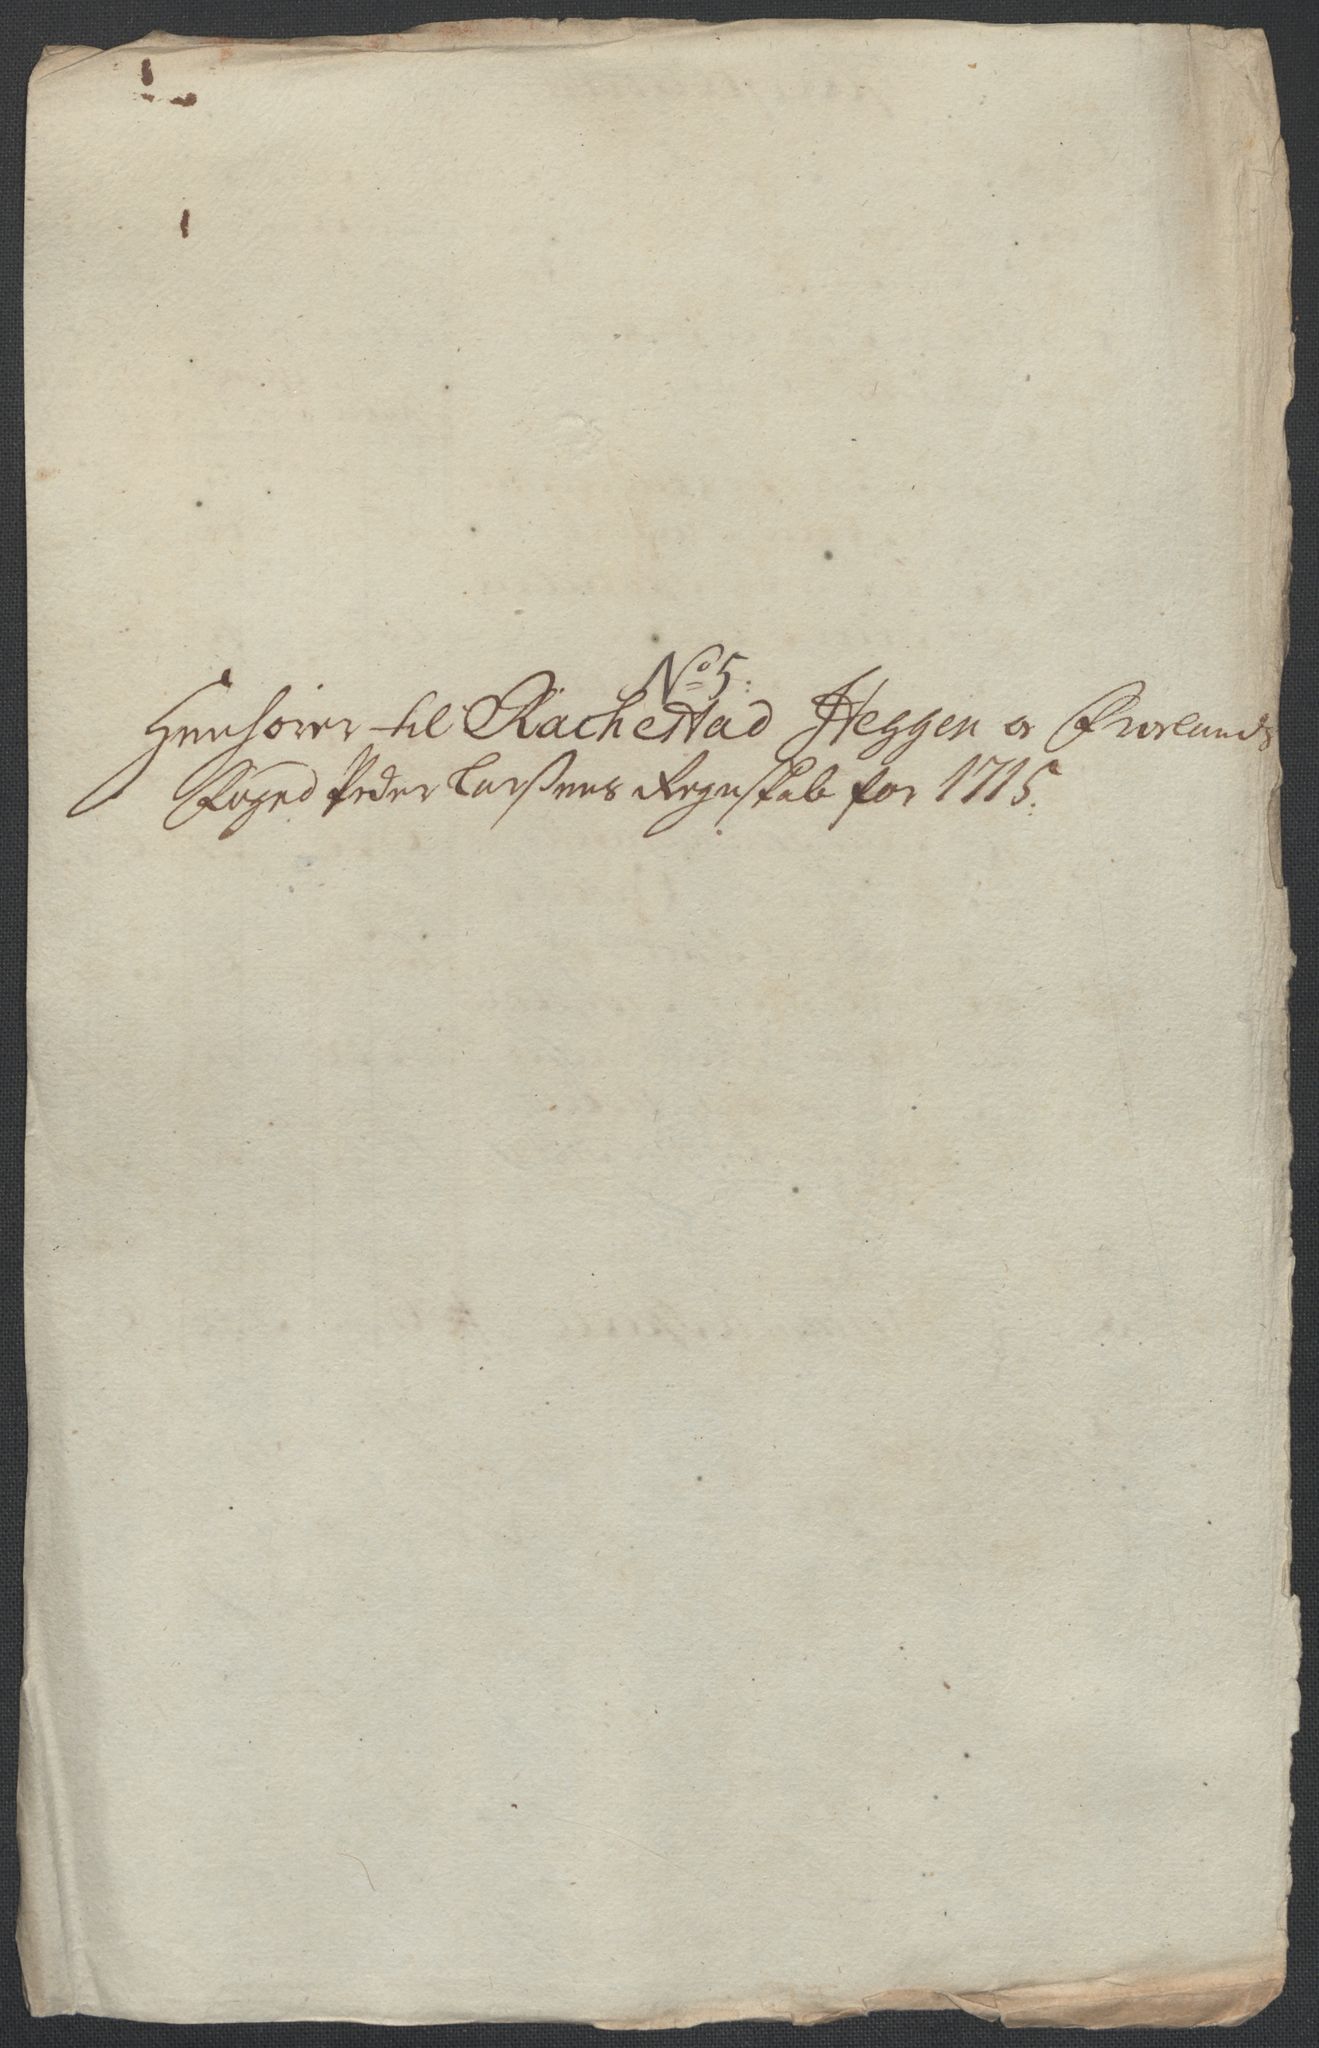 No 5:
Henhörer til Rachestad Heggen og Frölands
Foged Peder Larsens Regnskab for 1715.